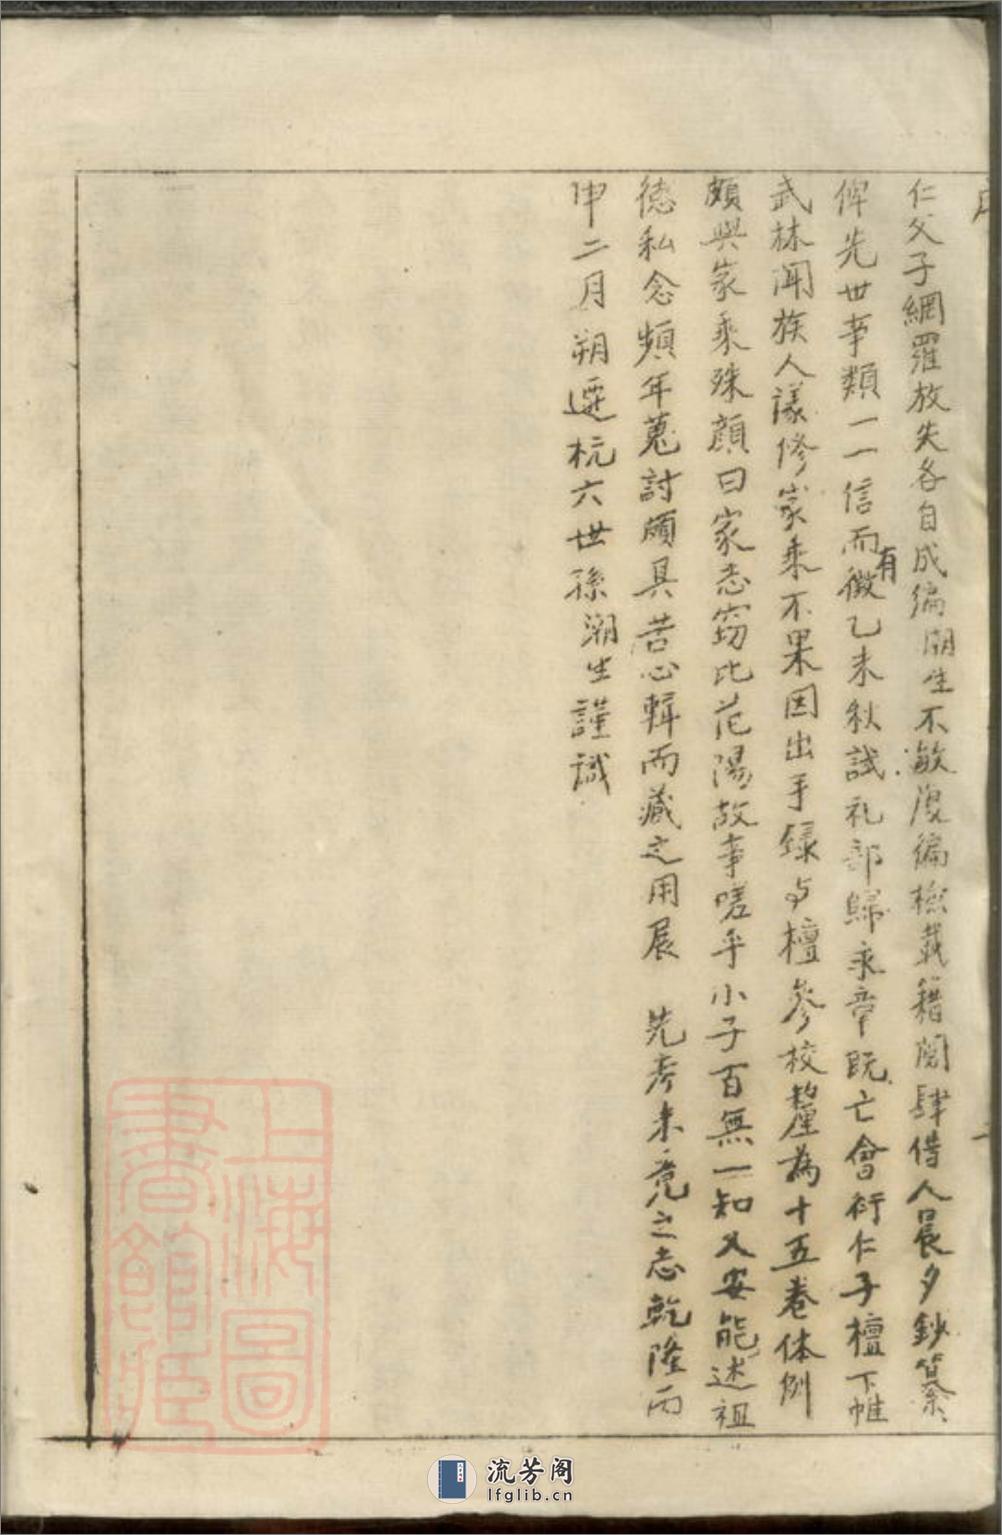 仁父子網羅放失各自成编潮生不敏復徧檢載籍閲肆借人晨夕鈔纂
俾先世事類一一信而有徵乙未秋試礼部歸永章既亡會衍仁子檀下帷
武林聞族人議修家乘不果因出手録与檀參校釐為十五卷体例
頗與家乘殊顏曰家志窃比花陽故事嗟乎小子百無一知又安能述祖
德私念頻年蒐討頗具苦心輯而藏之用展 先考未竟之志乾隆丙
申二月朔遷杭六世孫潮生謹識
上海圖書館藏
流芳阁
lfglib.cn